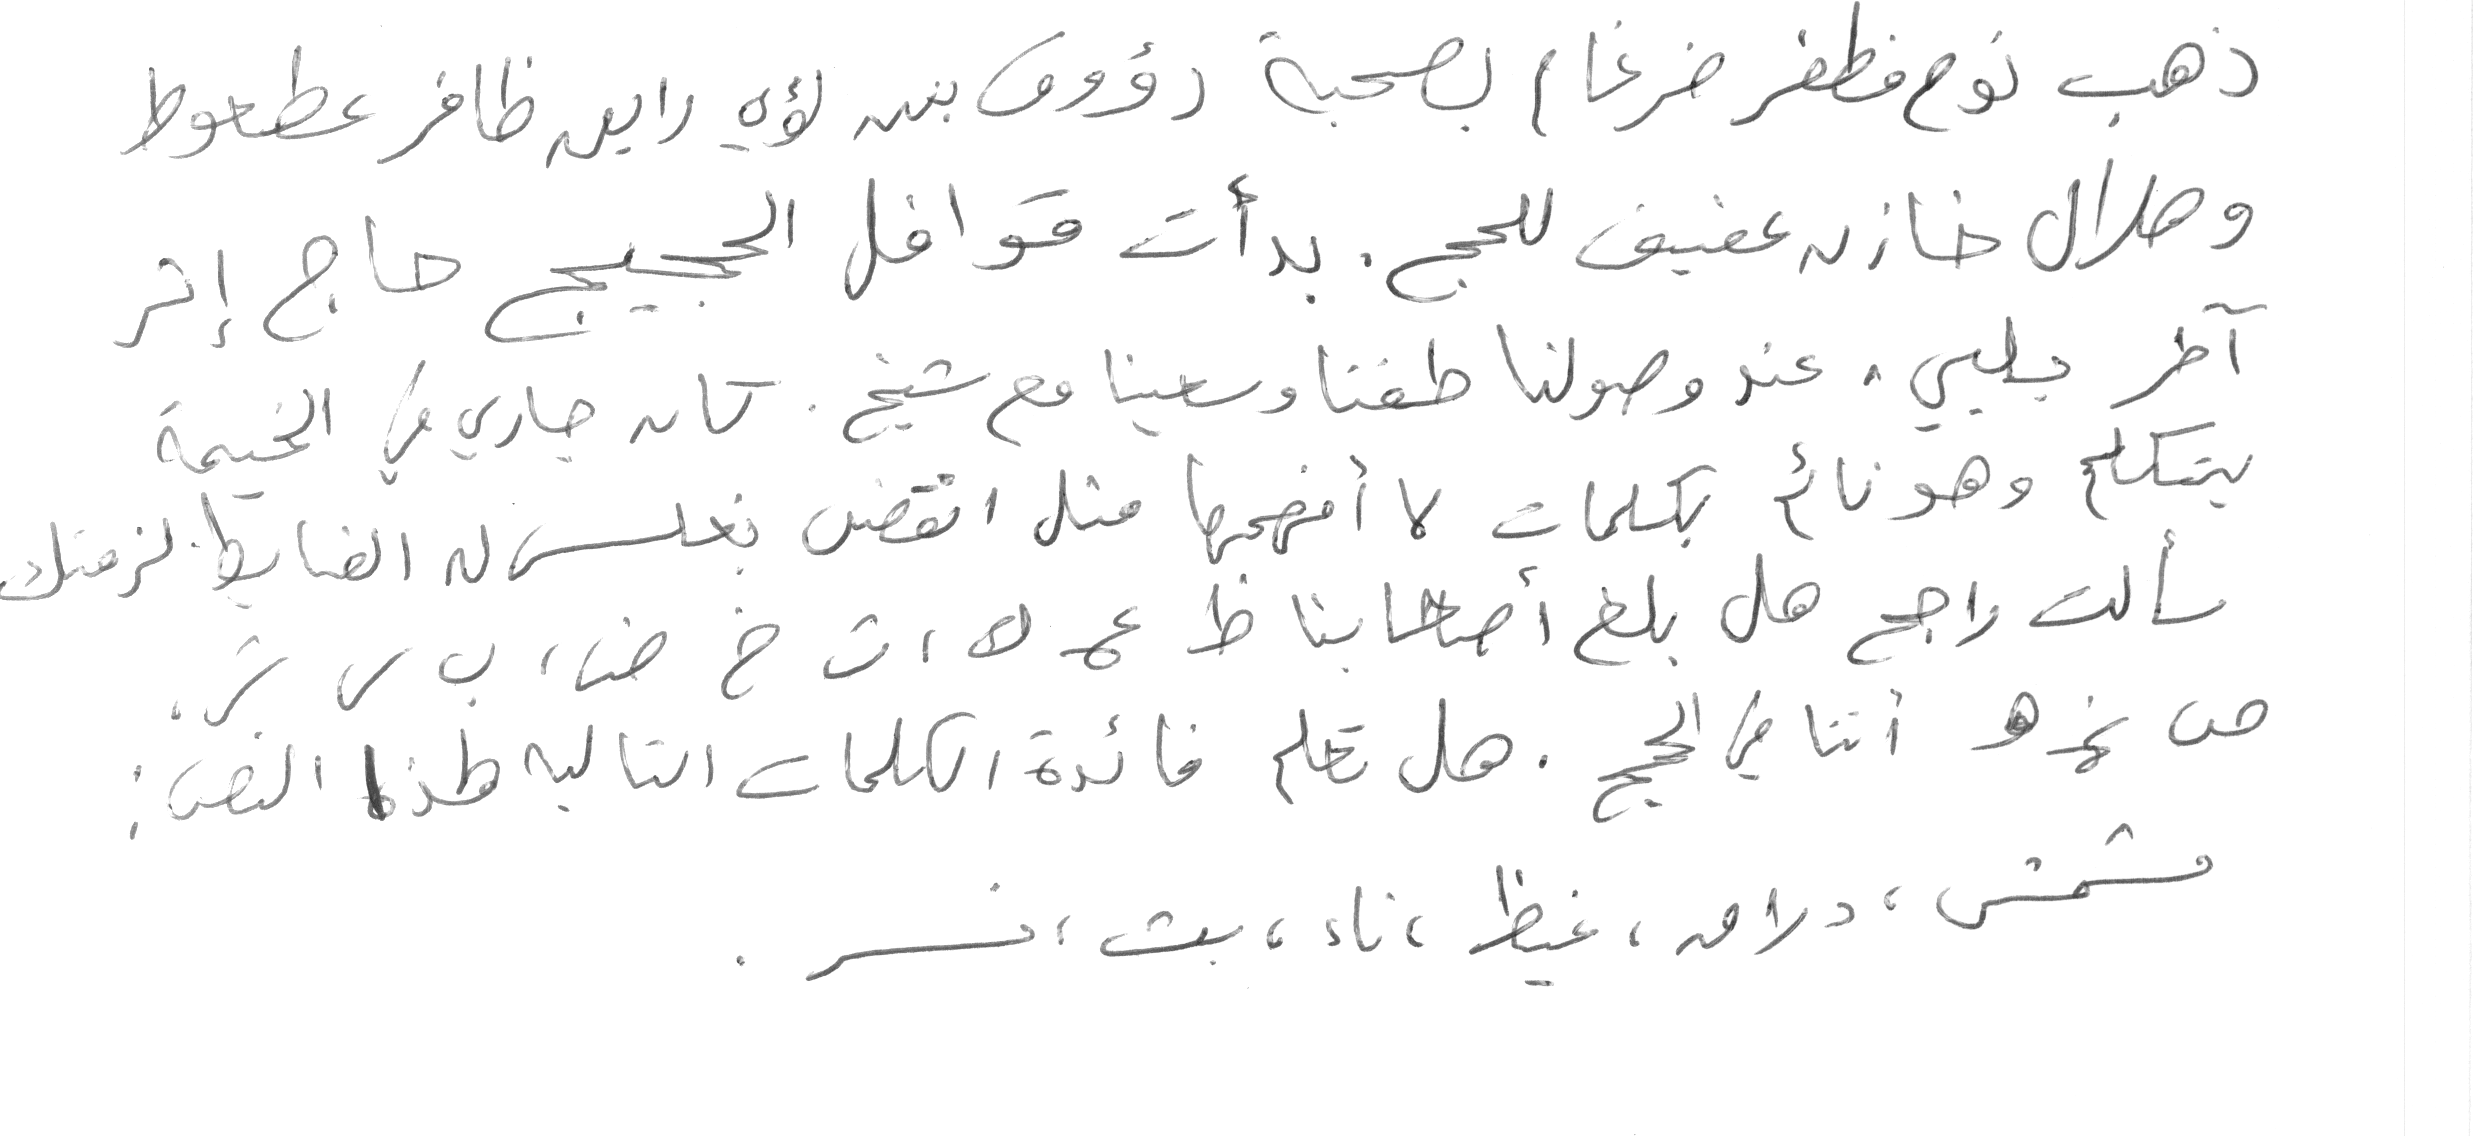 ذهب نوح مظفر ضرغام بصحبة رؤوف بن لؤي رايس ظافر عطعوط
وهلال خازن عفيف للحج. بدأت قوافل الحجيج حاج إثر
آخر يلبي، عند وصولنا طفنا وسعينا مع شيخ. كان جاري في الخيمة
يتكلم وهو نائم بكلمات لا أفهمها مثل انقض بغلس له الضابط لزمتك
سألت راجح هل بلغ أصحابنا ظ غ ك، ث خ ض، ب س ش،
ص غ ه أثنا في الحج. هل تعلم فائدة الكلمات التالية لهذا النص:
مشمش، درامه، غيظ، ناء، بث، نسر.